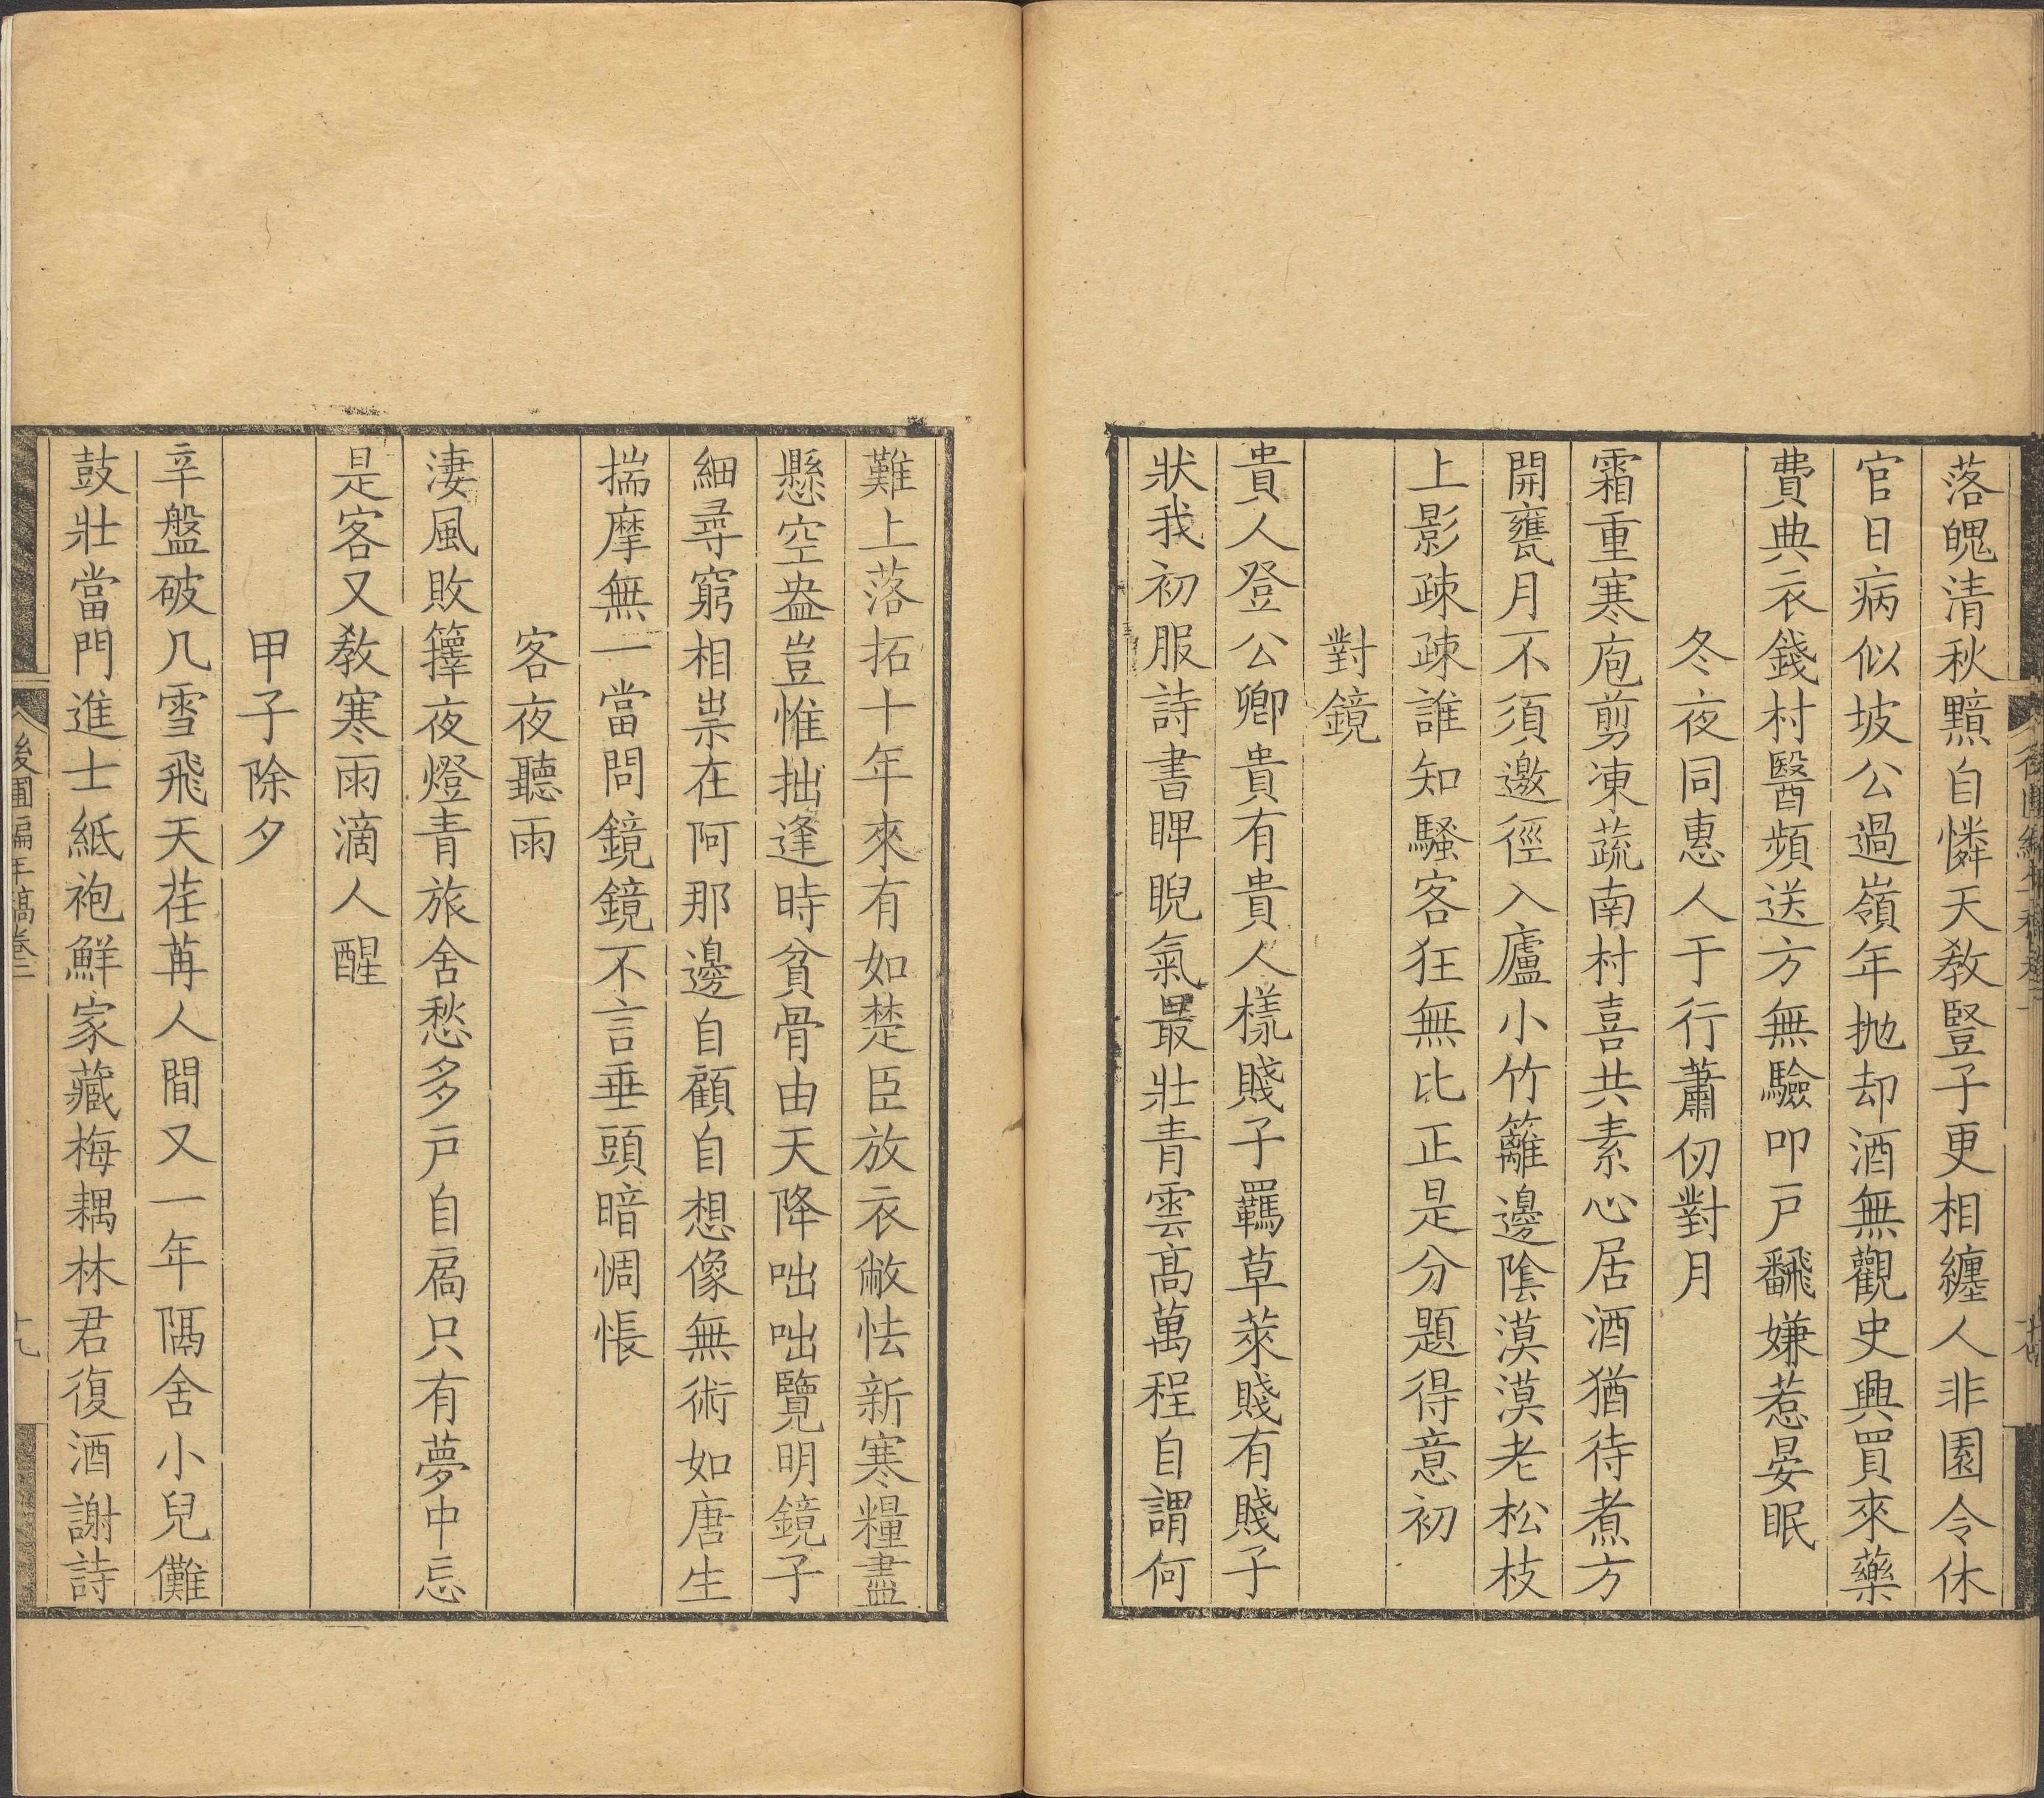 落魄清秋黯自憐天教豎子更相纏人非園令休
官日病似坡公過嶺年拋却酒無觀史興買來藥
費典衣錢村醫頻送方無驗叩戸飜嫌惹晏眠
冬夜同惠人于行蕭仞對月
霜重寒庖剪凍蔬南村喜共素心居酒猶待煮方
開甕月不須邀徑入廬小竹籬邊陰漠漠老松枝
上影疎疎誰知騷客狂無比正是分題得意初
對鏡
貴人登公卿貴有貴人樣賤子羈草萊賤有賤子
狀我初服詩書睥睨氣最壯青雲高萬程自謂何
難上落拓十年來有如楚臣放衣敝怯新寒糧盡
懸空盎豈惟拙逢時貧骨由天降咄咄覽明鏡子
細尋窮相祟在阿那邊自顧自想像無術如唐生
揣摩無一當問鏡鏡不言垂頭暗惆悵
客夜聽雨
淒風敗籜夜燈青旅舍愁多戸自扃只有夢中忘
是客又教寒雨滴人醒
甲子除夕
辛盤破几雪飛天荏苒人間又一年隔舍小兒儺
鼓壯當門進士紙袍鮮家藏梅耦林君復酒謝詩
後圃編年稿卷二
十九